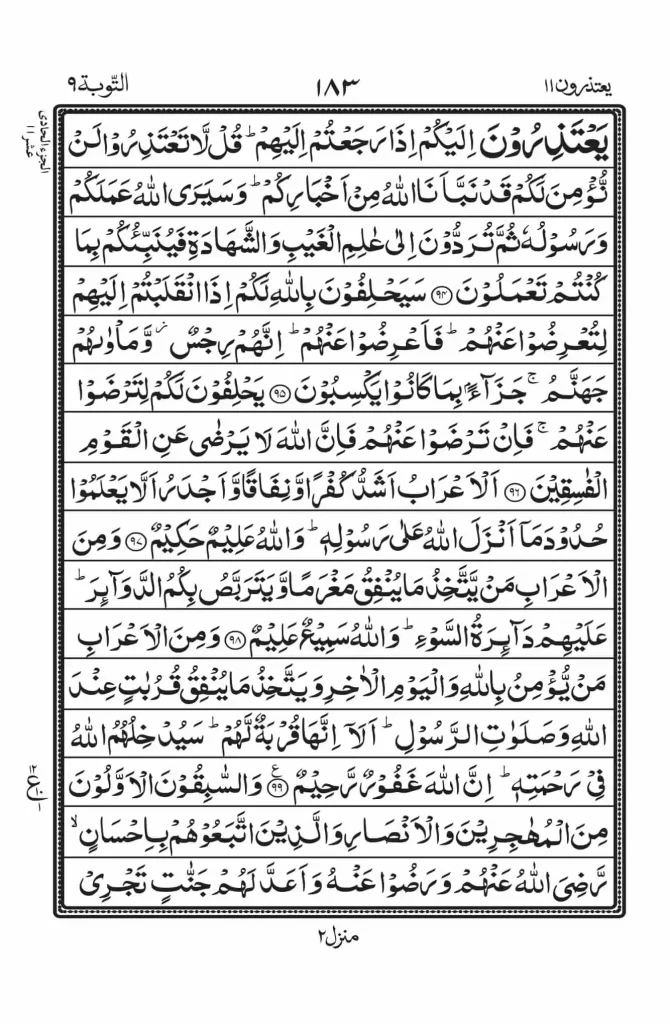 يعتذرون ١١ ١٨٣ التّوبة ٩
الجزء الحادى عشر ١١
يَعۡتَذِرُوۡنَ اِلَيۡكُمۡ اِذَا رَجَعۡتُمۡ اِلَيۡهِمۡ‌ ؕ قُلْ لَّا تَعۡتَذِرُوۡا لَنۡ
نُّؤۡمِنَ لَـكُمۡ قَدۡ نَـبَّاَنَا اللّٰهُ مِنۡ اَخۡبَارِكُمۡ‌ ؕ وَ سَيَرَى اللّٰهُ عَمَلَـكُمۡ
وَرَسُوۡلُهٗ ثُمَّ تُرَدُّوۡنَ اِلٰى عٰلِمِ الۡغَيۡبِ وَالشَّهَادَةِ فَيُنَبِّئُكُمۡ بِمَا
كُنۡتُمۡ تَعۡمَلُوۡنَ ﴿۹۴﴾ سَيَحۡلِفُوۡنَ بِاللّٰهِ لَـكُمۡ اِذَا انْقَلَبۡتُمۡ اِلَيۡهِمۡ
لِتُعۡرِضُوۡا عَنۡهُمۡ‌ؕ فَاَعۡرِضُوۡا عَنۡهُمۡ‌ؕ اِنَّهُمۡ رِجۡسٌ‌ۡ وَّمَاۡوٰٮهُمۡ
جَهَـنَّمُ‌ۚ جَزَآءًۢ بِمَا كَانُوۡا يَكۡسِبُوۡنَ ﴿۹۵﴾ يَحۡلِفُوۡنَ لَـكُمۡ لِتَرۡضَوۡا
عَنۡهُمۡ‌ۚ فَاِنۡ تَرۡضَوۡا عَنۡهُمۡ فَاِنَّ اللّٰهَ لَا يَرۡضٰى عَنِ الۡقَوۡمِ
الۡفٰسِقِيۡنَ ﴿۹۶﴾ اَلۡاَعۡرَابُ اَشَدُّ كُفۡرًا وَّ نِفَاقًا وَّاَجۡدَرُ اَلَّا يَعۡلَمُوۡا
حُدُوۡدَ مَاۤ اَنۡزَلَ اللّٰهُ عَلٰى رَسُوۡلِهٖ‌ؕ وَاللّٰهُ عَلِيۡمٌ حَكِيۡمٌ ﴿۹۷﴾ وَمِنَ
الۡاَعۡرَابِ مَنۡ يَّتَّخِذُ مَا يُنۡفِقُ مَغۡرَمًا وَّيَتَرَبَّصُ بِكُمُ الدَّوَآئِرَ‌ؕ
عَلَيۡهِمۡ دَآئِرَةُ السَّوۡءِ‌ؕ وَاللّٰهُ سَمِيۡعٌ عَلِيۡمٌ ﴿۹۸﴾ وَمِنَ الۡاَعۡرَابِ
مَنۡ يُّؤۡمِنُ بِاللّٰهِ وَالۡيَوۡمِ الۡاٰخِرِ وَيَتَّخِذُ مَا يُنۡفِقُ قُرُبٰتٍ عِنۡدَ
اللّٰهِ وَصَلَوٰتِ الرَّسُوۡلِ‌ؕ اَلَاۤ اِنَّهَا قُرۡبَةٌ لَّهُمۡ‌ؕ سَيُدۡخِلُهُمُ اللّٰهُ
فِىۡ رَحۡمَتِهٖ‌ؕ اِنَّ اللّٰهَ غَفُوۡرٌ رَّحِيۡمٌ ﴿۹۹﴾ ع وَالسّٰبِقُوۡنَ الۡاَوَّلُوۡنَ
مِنَ الۡمُهٰجِرِيۡنَ وَالۡاَنۡصَارِ وَالَّذِيۡنَ اتَّبَعُوۡهُمۡ بِاِحۡسَانٍ ۙ
رَّضِىَ اللّٰهُ عَنۡهُمۡ وَرَضُوۡا عَنۡهُ وَاَعَدَّ لَهُمۡ جَنّٰتٍ تَجۡرِىۡ
منزل ٢